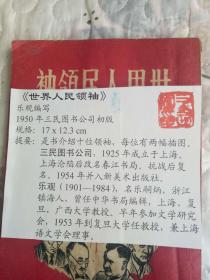 世界人民领袖
《世界人民领袖》
乐观编写
1950年三民图书公司初版
规格：17 x 12.3 cm
提要：是书介绍十位领袖，每位有两幅插图。
三民图书公司，1925年成立于上海，
上海沦陷后改名春江书局，抗战后复
名，1954年并入新美术出版社。
乐观（1901—1984），名乐嗣炳，浙江
镇海人，曾任中华书局编辑，上海、复
旦、广西大学教授。早年参加文学研究
会，1953年到复旦大学任教授，兼上海
语文学会理事。